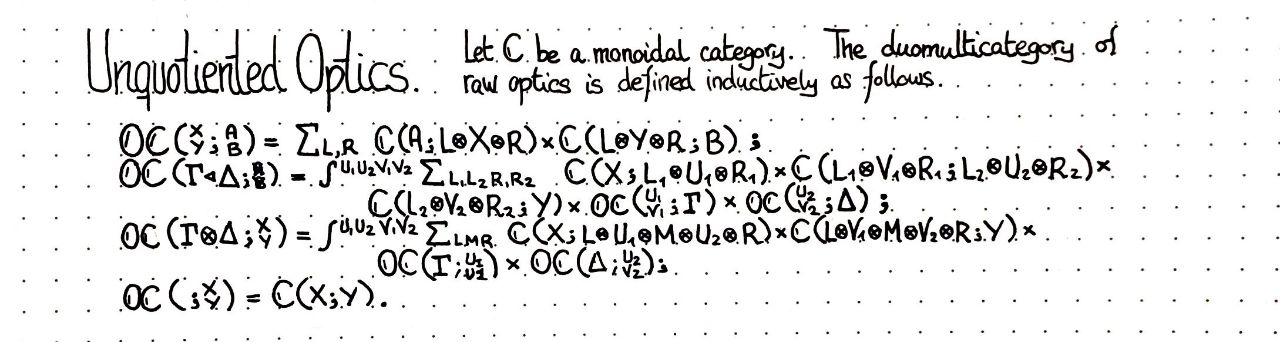 Unquotiented Optics. Let ℂ be a monoidal category. The duomulticategory of
raw optics is defined inductively as follows.
𝕆ℂ(X Y ; A B) = ∑_{L,R} ℂ(A; L⊗X⊗R) × ℂ(L⊗Y⊗R; B);
𝕆ℂ(Γ◁Δ; A B) = ∫^{U₁U₂V₁V₂} ∑_{L₁L₂R₁R₂} ℂ(X; L₁⊗U₁⊗R₁) × ℂ(L₁⊗V₁⊗R₁; L₂⊗U₂⊗R₂) ×
ℂ(L₂⊗V₂⊗R₂; Y) × 𝕆ℂ(U₁ V₁ ; Γ) × 𝕆ℂ(U₂ V₂ ; Δ);
𝕆ℂ(Γ⊗Δ; X Y) = ∫^{U₁U₂V₁V₂} ∑_{LMR} ℂ(X; L⊗U₁⊗M⊗U₂⊗R) × ℂ(L⊗V₁⊗M⊗V₂⊗R; Y) ×
𝕆ℂ(Γ; ) × 𝕆ℂ(Δ; U₂ V₂);
𝕆ℂ(; X Y) = ℂ(X; Y).